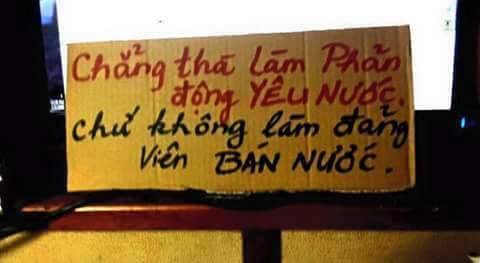 Chẳng thà làm Phản
động YÊU NƯỚC.
chứ không làm đảng
Viên BÁN NƯỚC.